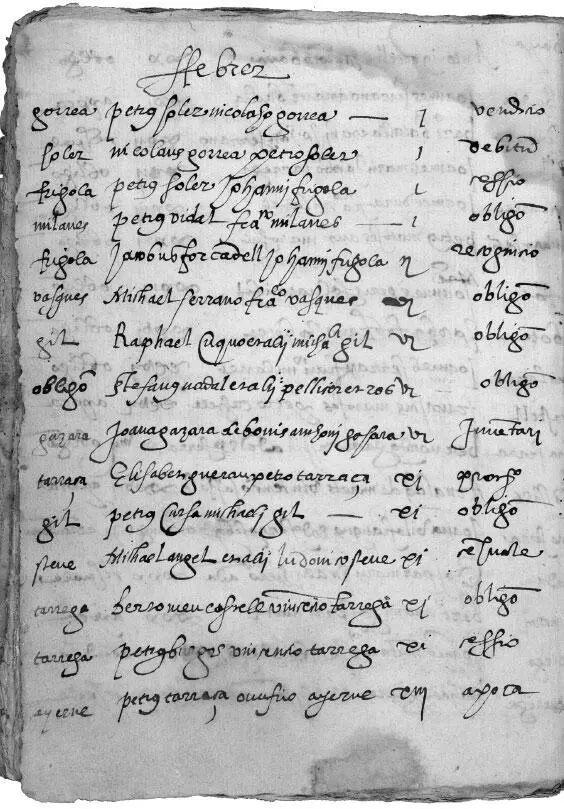 ffebrer
gorrea petrus soler nicolaso gorrea — I vendicio
soler nicolaus gorrea petro soler I debitum
fugola petrus soler Johanni fugola I cessio
milanes petrus vidal fran.co milanes — I obligo
fugola Jacobus forcadell Johanni fugola II recognicio
vasques Michael serrano fran.co vasques VI obligo
gil Raphael et alij gil VI obligo
obligo Stefanus nadal et alij pellicer et ros VI obligo
gazara Joana gazara de bonis anthonj gassara VI Jnventari
tarraça Elisabet guerau petro tarraça XI
gil petrus Cursa michaeli gil — XI obligo
steve Michael angel et alij ludovico steve XI
tarrega bertomeu castell vincencio tarrega XI obligo
tarrega petrus vincencio tarrega XI cessio
ayerve petrus tarraça onufrio ayerve XIII apoca